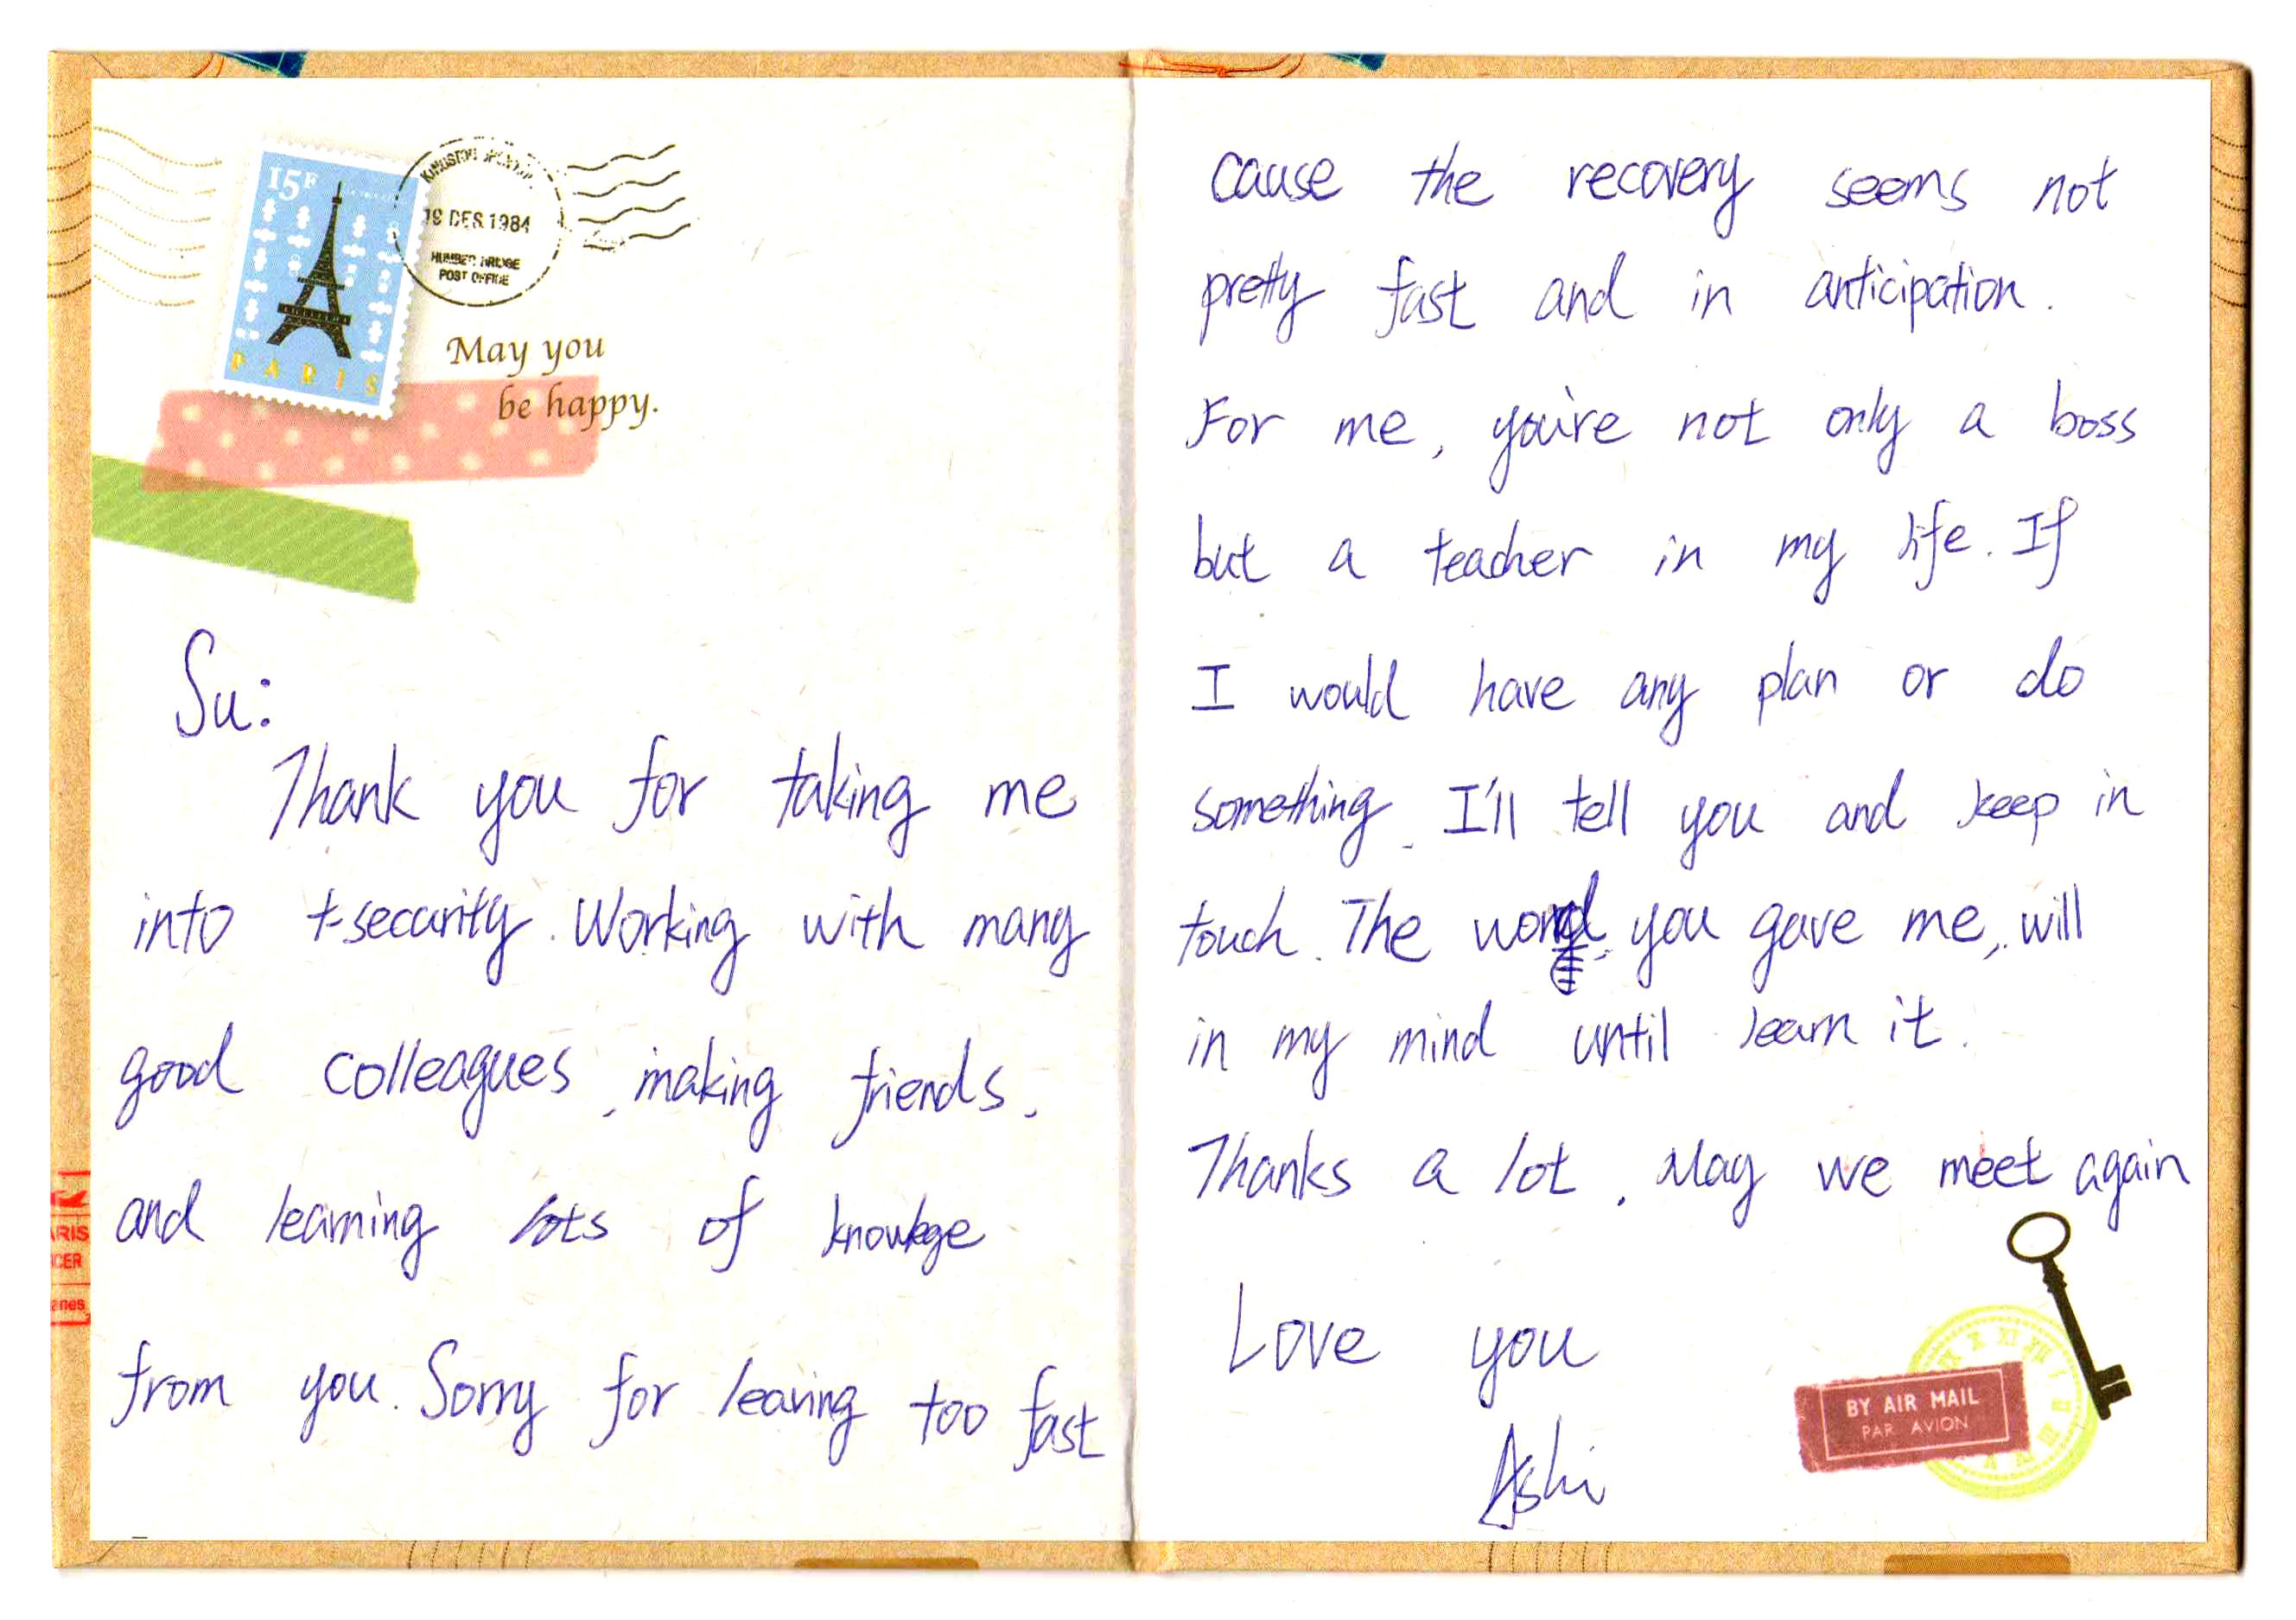 15F
PARIS
1984
POST OFFICE
May you
be happy.
Su:
Thank you for taking me
into t-security. Working with many
good colleagues, making friends,
and learning lots of knowlege
from you. Sorry for leaving too fast
cause the recovery seems not
pretty fast and in anticipation.
For me, you're not only a boss
but a teacher in my life. If
I would have any plan or do
something, I'll tell you and keep in
touch. The word, you gave me, will
in my mind until learn it.
Thanks a lot, May we meet again
Love you
Ashi
BY AIR MAIL
PAR AVION